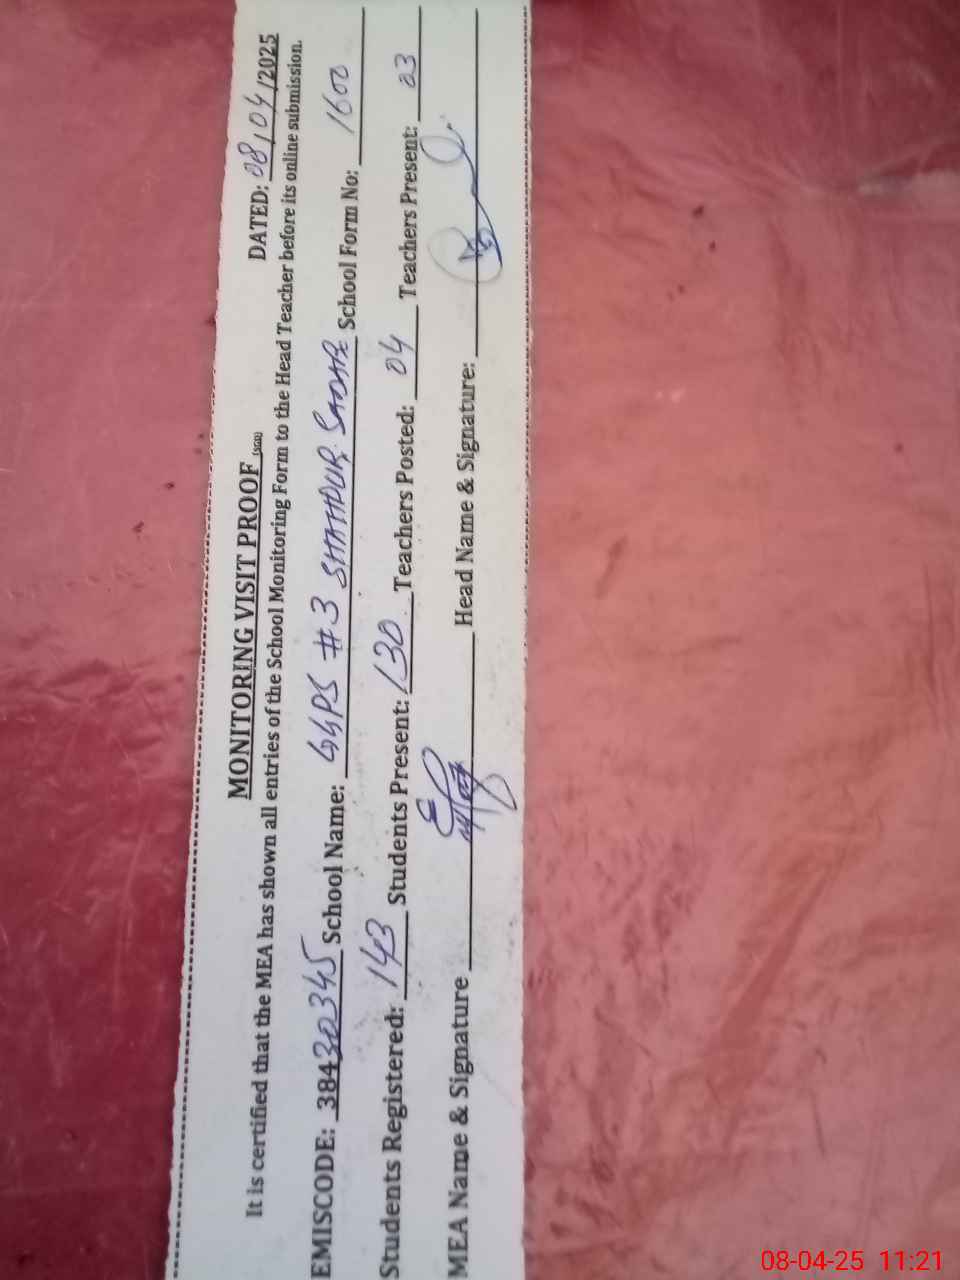 MONITORING VISIT PROOF (SGD) DATED: 08/04/2025
It is certified that the MEA has shown all entries of the School Monitoring Form to the Head Teacher before its online submission.
EMISCODE: 38430345 School Name: GGPS #3 SHAHPUR SADAR School Form No: 1600
Students Registered: 143 Students Present: 130 Teachers Posted: 04 Teachers Present: 03
MEA Name & Signature Head Name & Signature:
08-04-25 11:21